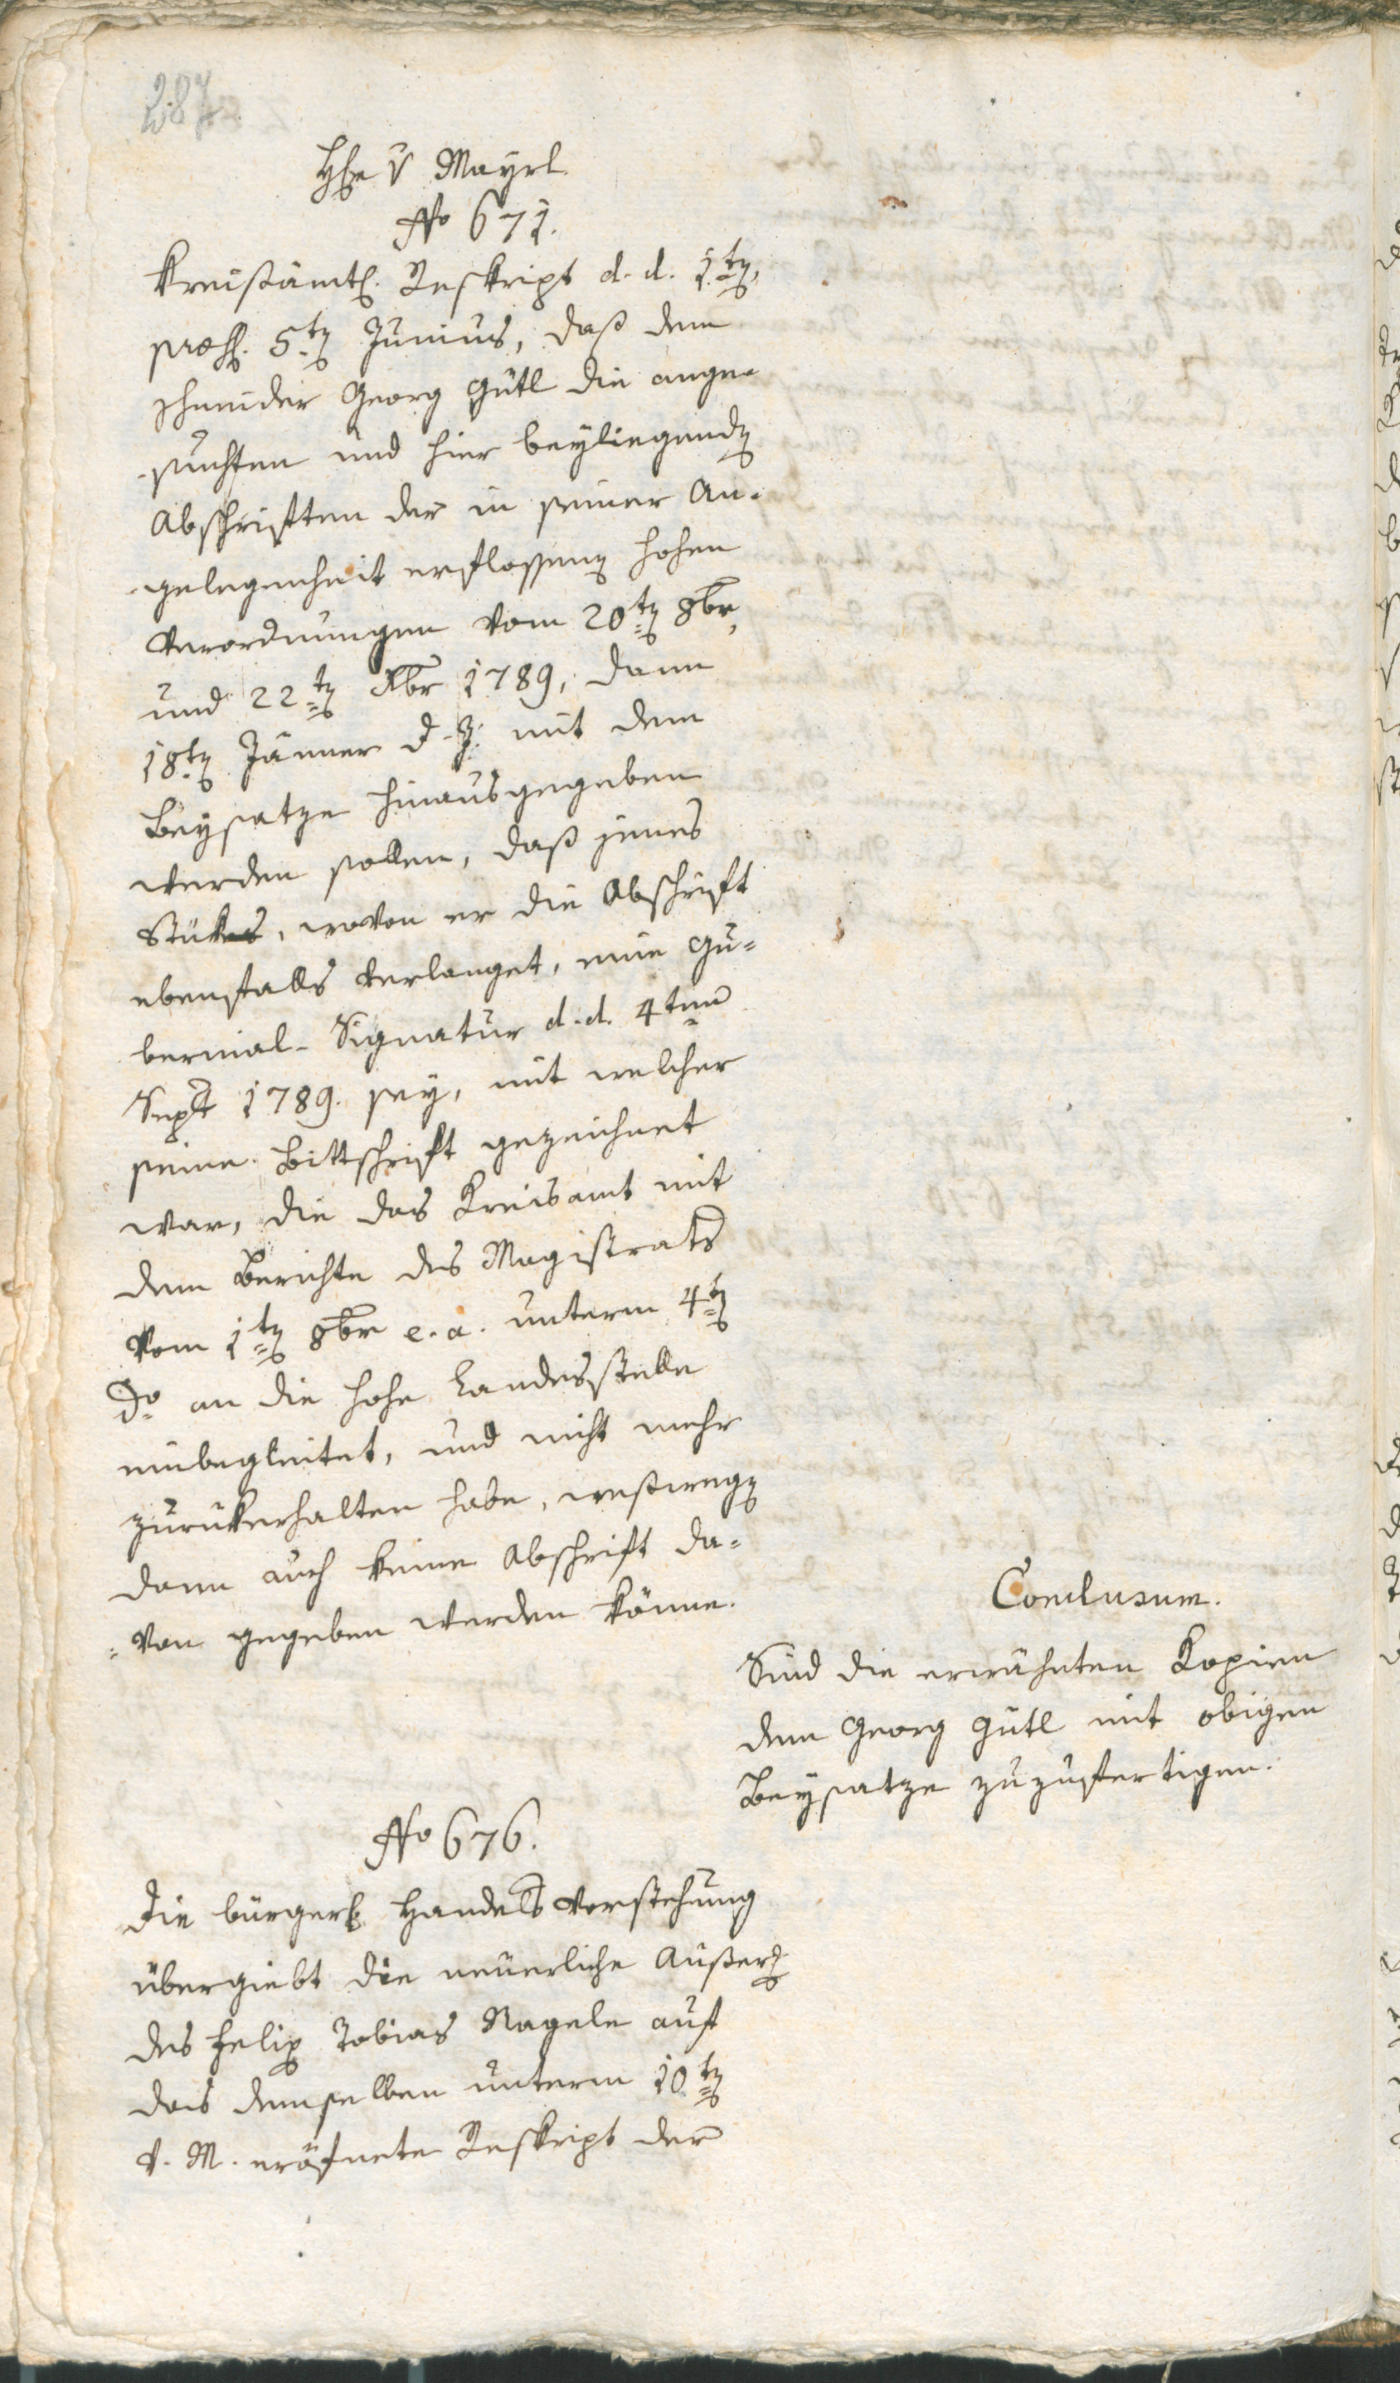 287
H̅e v Mayrl.
No 671.
Kreisämtl. Reskript d. d. 1ten,
præs. 5ten Junius, daß dem
Schneider Georg Gütl die ange-
-suchten und hier beyliegenden
Abschriften der in seiner An-
-gelegenheit erflossenen hohen
Verordnungen vom 20ten 8br,
und 22ten Xbr 1789, dann
18ten Jänner d. J. mit dem
Beysatze hinausgegeben
werden sollen, daß jenes
Stük, wovon er die Abschrift
ebenfalls verlanget, eine Gu-
bernial-Signatur d. d. 4ten
Sept 1789. sey, mit welcher
seine Bittschrift gezeichnet
war, die das Kreisamt mit
dem Berichte des Magistrats
vom 1ten 8br e. a. unterm 4ten
Do an die hohe Landesstelle
einbegleitet, und nicht mehr
zurükerhalten habe, weßwegen
dann auch keine Abschrift da-
-von gegeben werden könne.
Conclusum.
Sind die erwähnten Kopien
dem Georg Gütl mit obigen
Beysatze zuzufertigen.
No 676.
Die bürgerl. Handels Vorstehung
übergiebt die neuerliche Äußerg
des Felix Tobias Nagele auf
das demselben unterm 10ten
v. M. eröfnete Reskript der